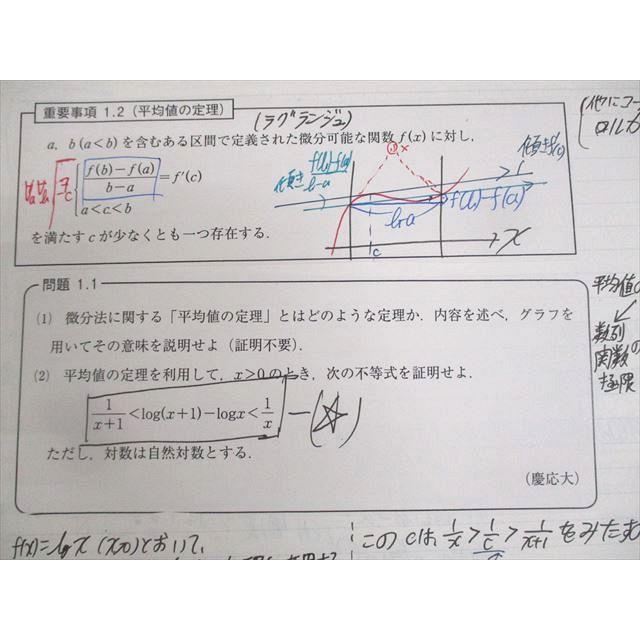 重要事項 1.2 (平均値の定理)
(ラグランジュ)
a, b (a<b) を含むある区間で定義された微分可能な関数 f(x) に対し,
f(b)−f(a)
b−a
=f′(c)
a<c<b
を満たす c が少なくとも一つ存在する.
傾き
f(b)-f(a)
b-a
b-a
f(b)-f(a)
c
x
問題 1.1
(1) 微分法に関する「平均値の定理」とはどのような定理か. 内容を述べ, グラフを
用いてその意味を説明せよ (証明不要).
(2) 平均値の定理を利用して, x>0 のとき, 次の不等式を証明せよ.
1/(x+1) <log(x+1)−logx< 1/x
―(☆)
ただし, 対数は自然対数とする.
(慶応大)
平均値の
数列
関数の
極限
f(x)=log x (x>0)とおいて,
このcは, 1/x > 1/c > 1/(x+1) をみたす